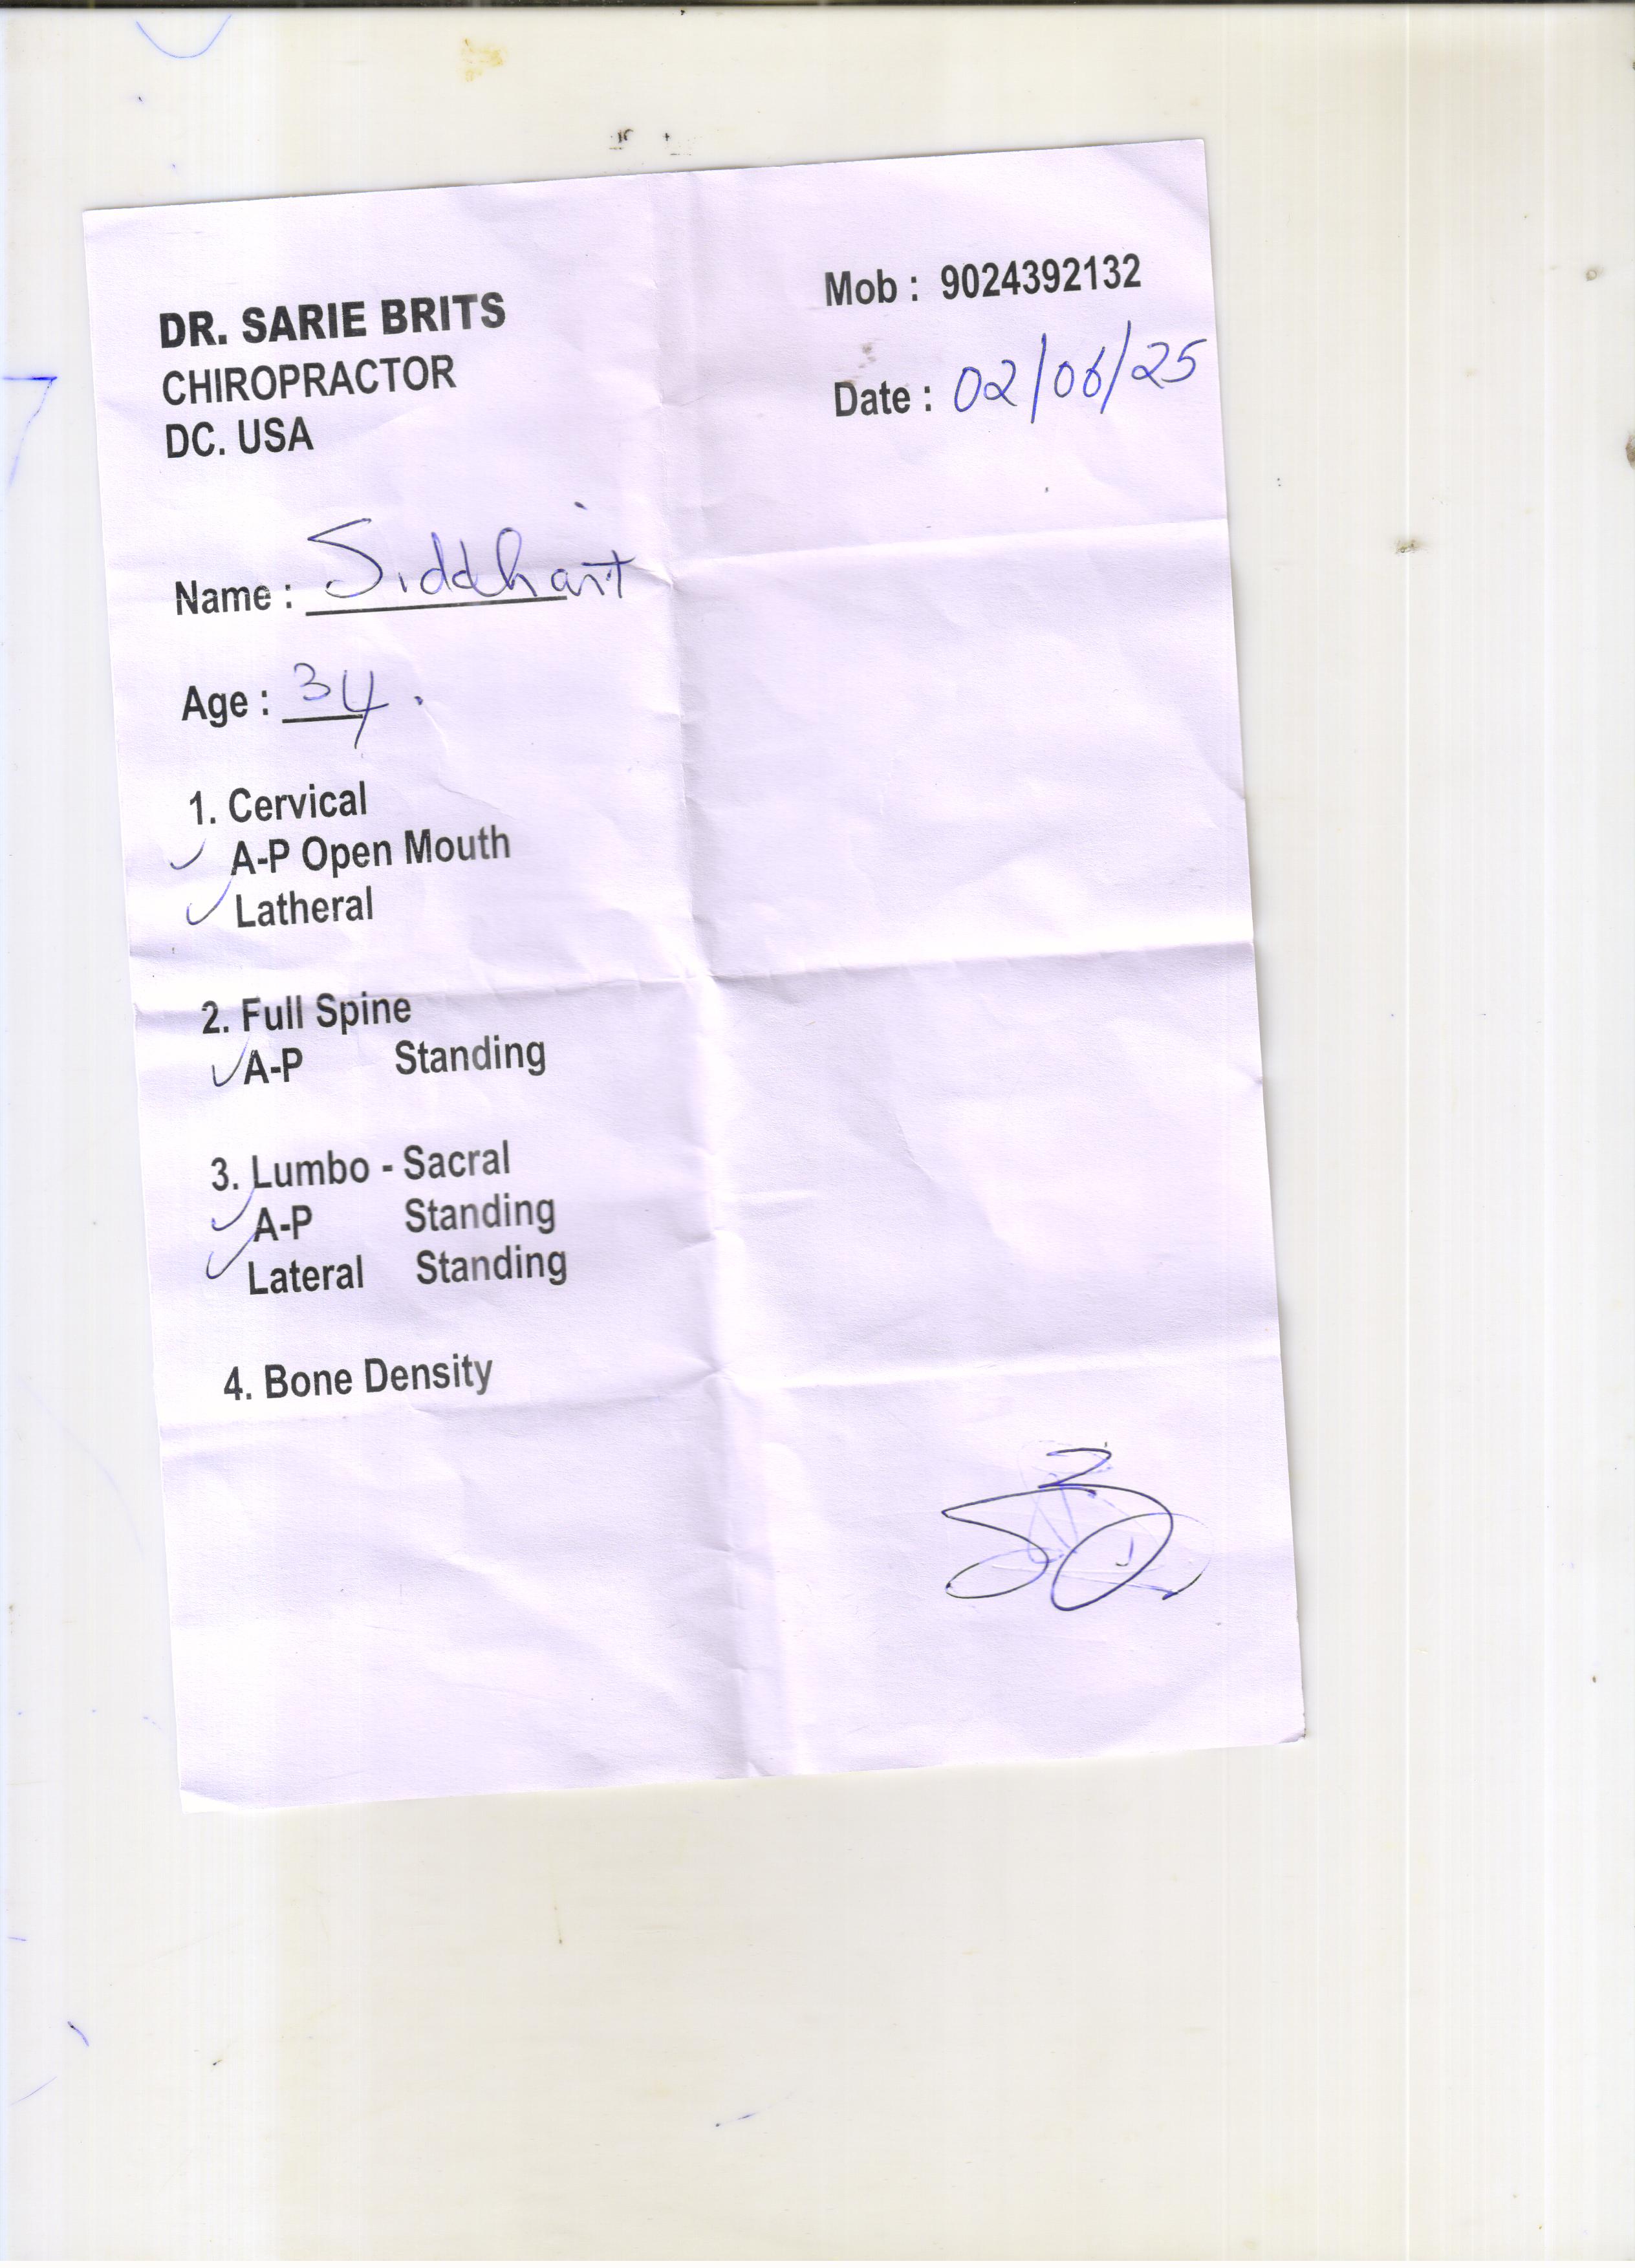 DR. SARIE BRITS
CHIROPRACTOR
DC. USA
Mob : 9024392132
Date : 02/06/25
Name : Siddhant
Age : 34.
1. Cervical
✓ A-P Open Mouth
✓ Latheral
2. Full Spine
✓ A-P Standing
3. Lumbo - Sacral
✓ A-P Standing
✓ Lateral Standing
4. Bone Density